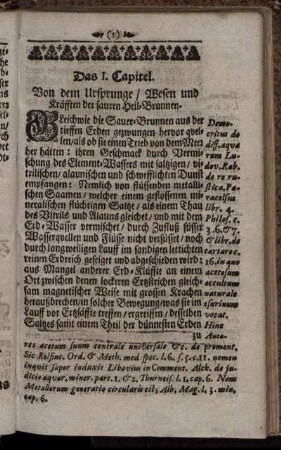 (1)
Das I. Capitel.
Von dem Ursprunge / Wesen und
Kräfften der sauren Heil-Brunnen.
Gleichwie die Sauer-Brunnen aus der
tieffen Erden gezwungen hervor quel-
len / als ob sie einen Trieb von dem Mee
her hätten: ihren Geschmack durch Vermi-
schung des Element-Wassers mit saltzigen / vi-
trilischen / alaunischen und schwefflichten Dunst
empfangen: Nemlich von flüssenden metalli-
schen Saamen / welcher einem geflossenen mi-
neralischen flüchtigen Saltze / als einem Thau
des Vitrils und Alauns gleichet / und mit dem
Erd-Wasser vermischet / durch Zufluß süsser
Wasserquellen und Flüsse nicht versüsset / noch
durch langweiligen Lauff im sandigen lettichten
reinen Erdreich geseiget und abgeschieden wird:
aus Mangel anderer Erd-Klüffte an einem
Ort zwischen denen lockeren Ertzstrichen gleich-
sam magnetischer Weise mit grossen Krachen
herausbrechen / in solcher Bewegung / was sie im
Lauff vor Ertzsäffte treffen / ergreiffen / desselben
Saltzes samt einem Theil der dünnesten Erden
zu
Demo-
critus de
diff. aquæ
rum Lu-
dov. Rab.
de re ru-
stica, Pa-
racelsus
libr. 4.
Philos. c.
3. 6. & 7.
& libr. de
tartaro c.
16. in quo
acetosum
occultum
naturale
esurinum
vocat.
Hinc
Auto-
res acetum suum centrale universale &c. de promont.
Sic Rulsinc. Ord. & Meth. med. spec. l. 6. s. 5. c. 11. nomen
inquit saper induxit Libavius in Comment. Alch. de ju-
dicio aquar. miner. part. 1. & 2. Thurneis. l. 1. cap. 6. Nam
Metallorum generatio circularis est, Alb. Mag. l. 3. min.
cap. 6.